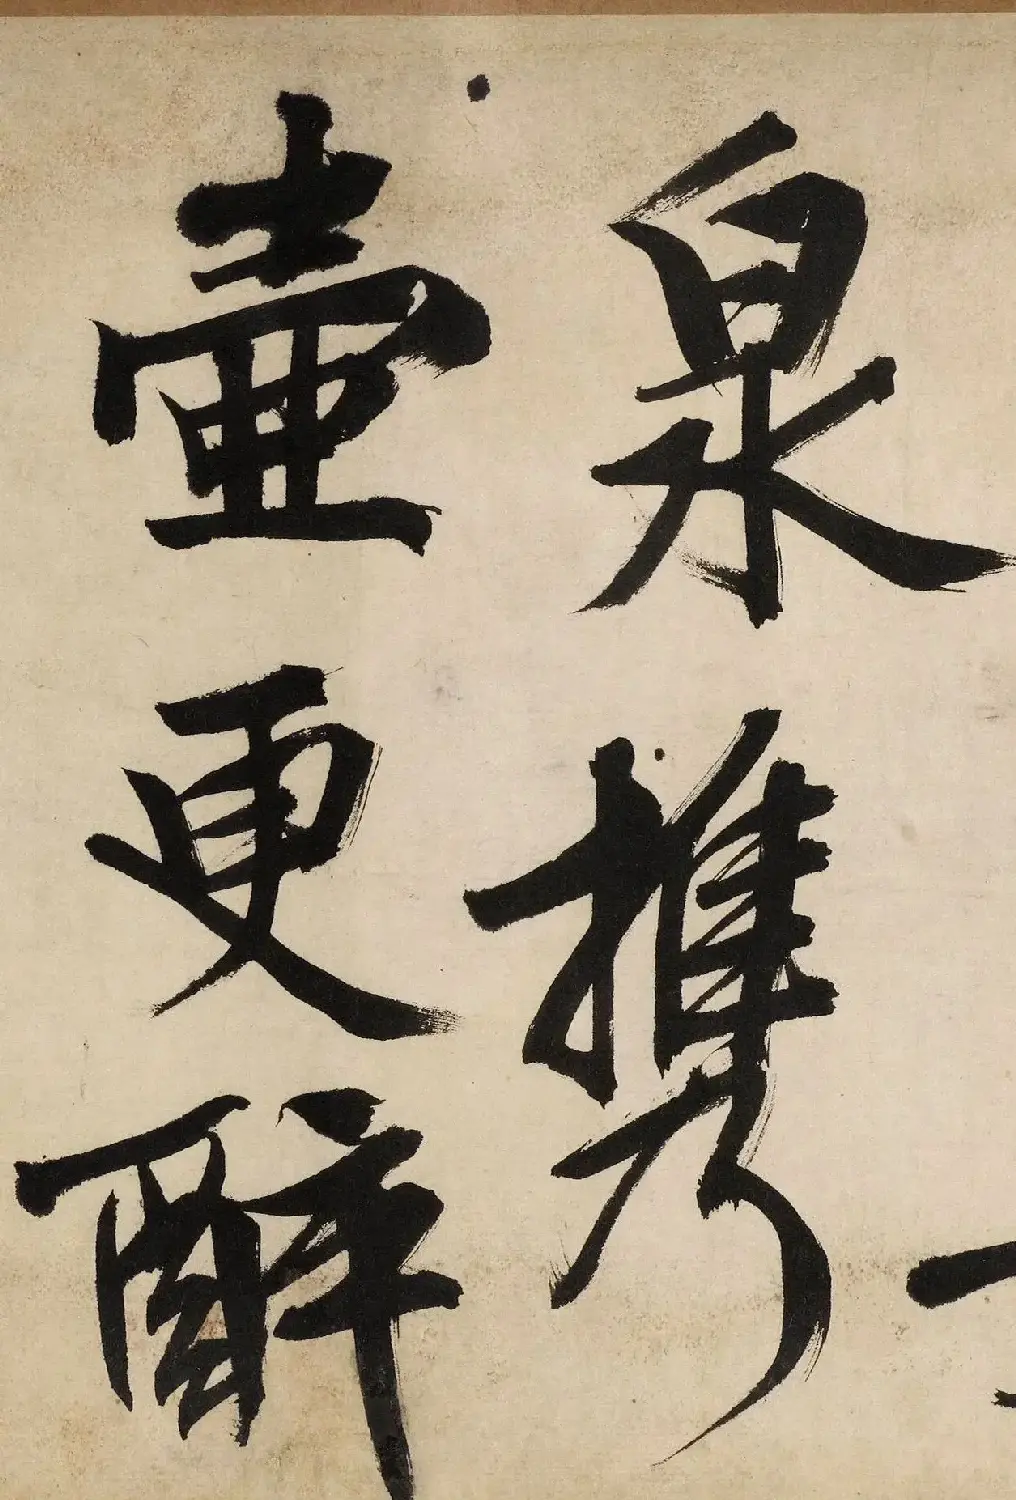 泉携
壺更醉